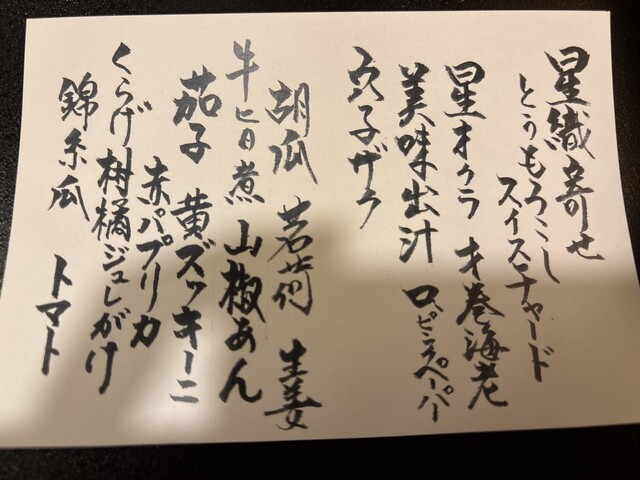 星織寄せ
とうもろこし
スイスチャード
星オクラ 才巻海老
美味出汁 ロ゚ピンクペーパー
穴子ザク
胡瓜 茗荷 生姜
牛旨煮 山椒あん
茄子 黄ズッキーニ
赤パプリカ
くらげ柑橘ジュレがけ
錦糸瓜 トマト